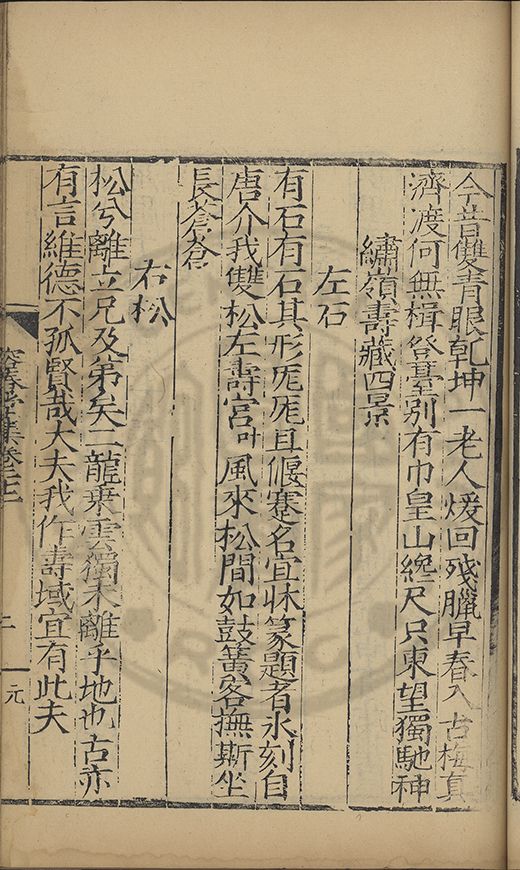 今昔雙青眼乾坤一老人煖回殘臘早春入古梅真
濟渡何無楫登臺別有巾皇山纔尺只東望獨馳神
繡嶺壽藏四景
左石
有石有石其形厖厖且偃蹇名宜牀篆題者冰刻自
唐介我雙松左壽宮叶風來松間如鼓簧客撫斯坐
長蒼蒼
右松
松兮離立兄及弟矣一龍乗雲獨未離乎地也古亦
有言維德不孤賢哉大夫我作壽域宜有此夫
堂集卷之二
二
元